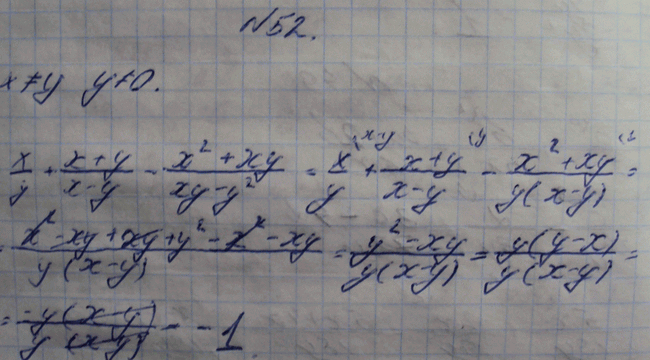 №52.
x ≠ y y ≠ 0.
x/y + (x+y)/(x-y) - (x² + xy)/(xy-y²) = x/y ⁽ˣ⁻ʸ + (x+y)/(x-y) ⁽ʸ - (x² + xy)/(y(x-y)) ⁽¹ =
= (x² - xy + xy + y² - x² - xy)/(y(x-y)) = (y² - xy)/(y(x-y)) = (y(y-x))/(y(x-y)) =
= (-y(x-y))/(y(x-y)) = -1